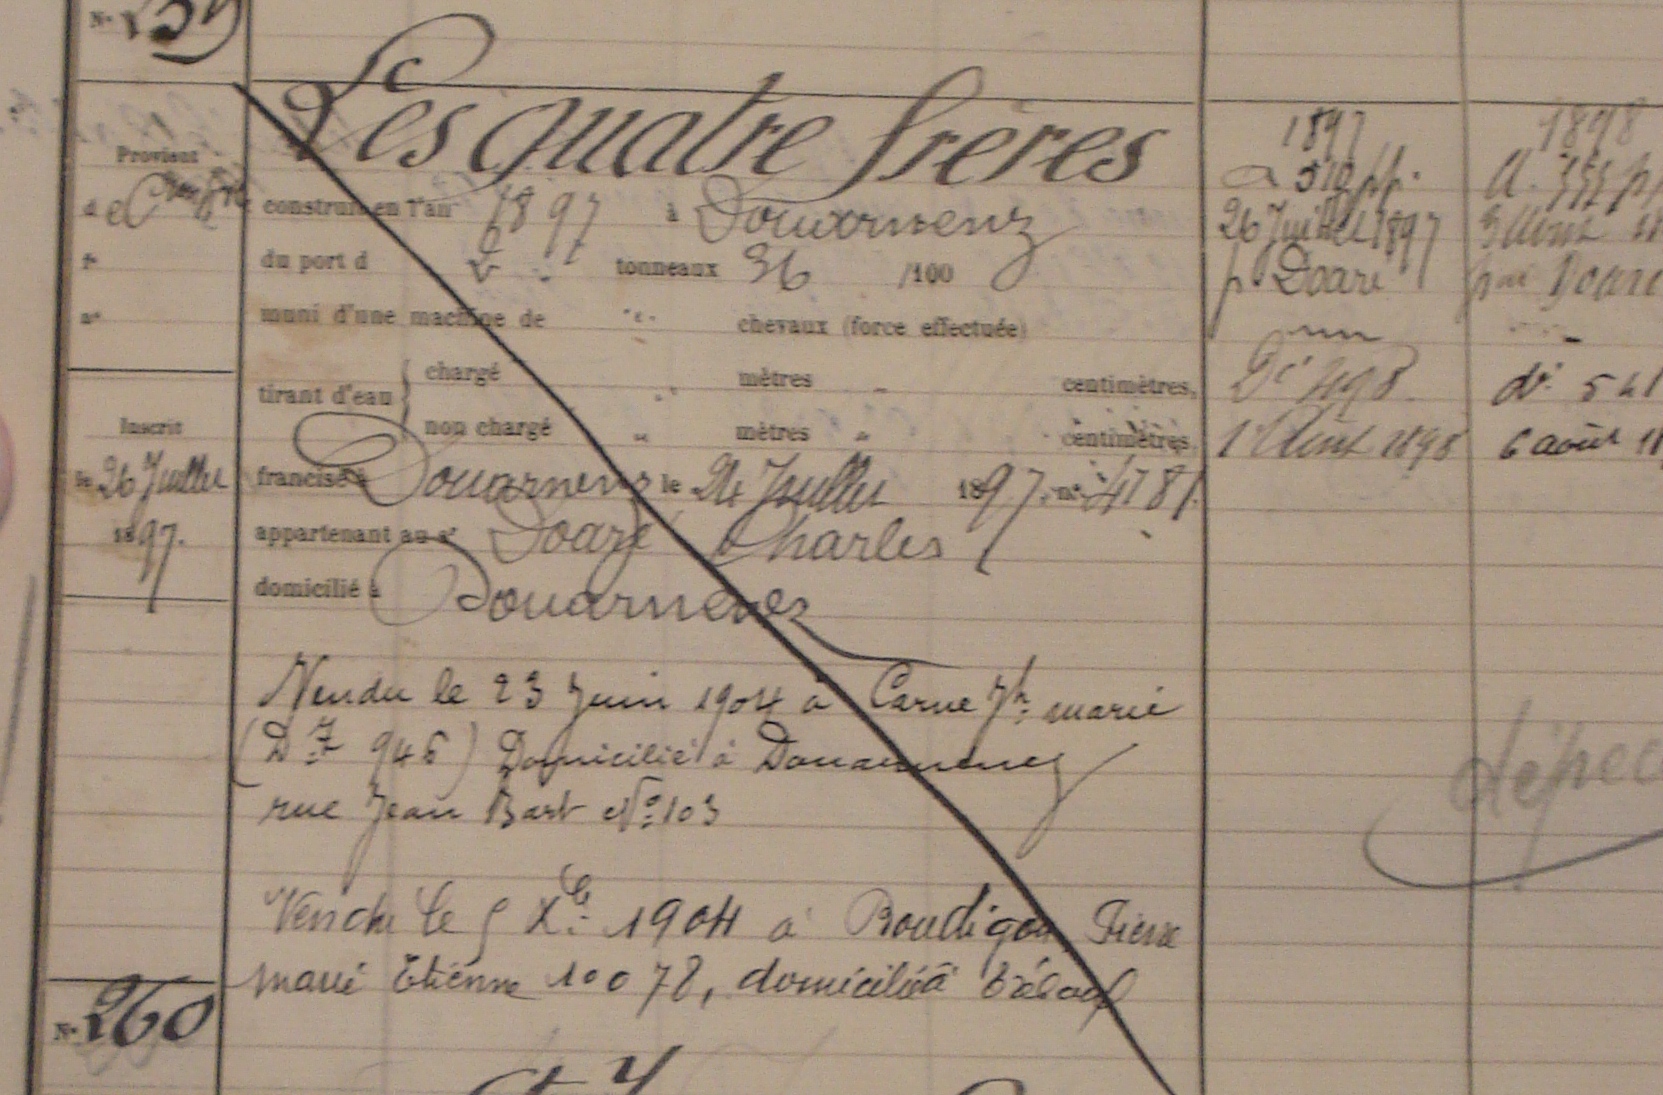 N° 259
Les quatre frères
Provient
d
construit en l'an 1897 à Douarnenez
du port d tonneaux 36 /100
muni d'une machine de chevaux (force effectuée)
tirant d'eau { chargé mètres centimètres,
non chargé mètres centimètres,
Inscrit
le 26 Juillet
1897.
francisé à Douarnenez le 24 Juillet 1897. n° 4781.
appartenant au sr Doaré Charles
domicilié à Douarnenez
Vendu le 23 Juin 1904 à Carne Jh marié
(Dz 945) Domicilié à Douarnenez
rue Jean Bart N° 103
Vendu le 5 Xbre 1904 à Boudigou Pierre
marié Etienne 10078, domicilié à Tréboul
1897
a 519 pp.
26 Juillet 1897
p Doaré
Dt 498
1 Août 1898
1898
a. 555 p
par Doaré
dt 541
6 août 18
dépec
N° 260